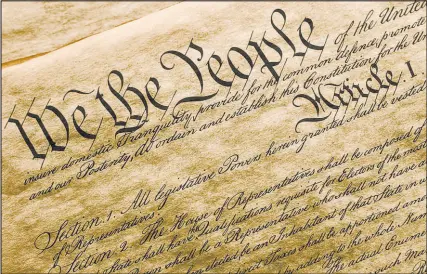 We the People of the United
insure domestic Tranquility, provide for the common defence, promote
and our Posterity, do ordain and establish this Constitution for the Uni
Article. I
Section. 1. All legislative Powers herein granted shall be vested
of Representatives.
Section. 2. The House of Representatives shall be composed of
State shall have Qualifications requisite for Electors of the most
shall be a Representative who shall not have a
when elected be an Inhabitant of that State in
Taxes shall be apportioned among
adding to the whole Num
The actual Enumer